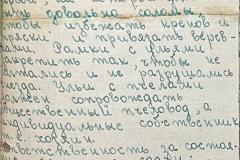 довольно соломы,
чтобы избежать кренов и
тряски и привязать верев-
ками. Рамки с ульями
закрепить так, чтобы не
болтались и не разрушились
гнезда. Ульи с пчелами
должен сопровождать
пчеловод, а
индивидуальные собственник
т.е. хозяин.
ответственность за состоя-